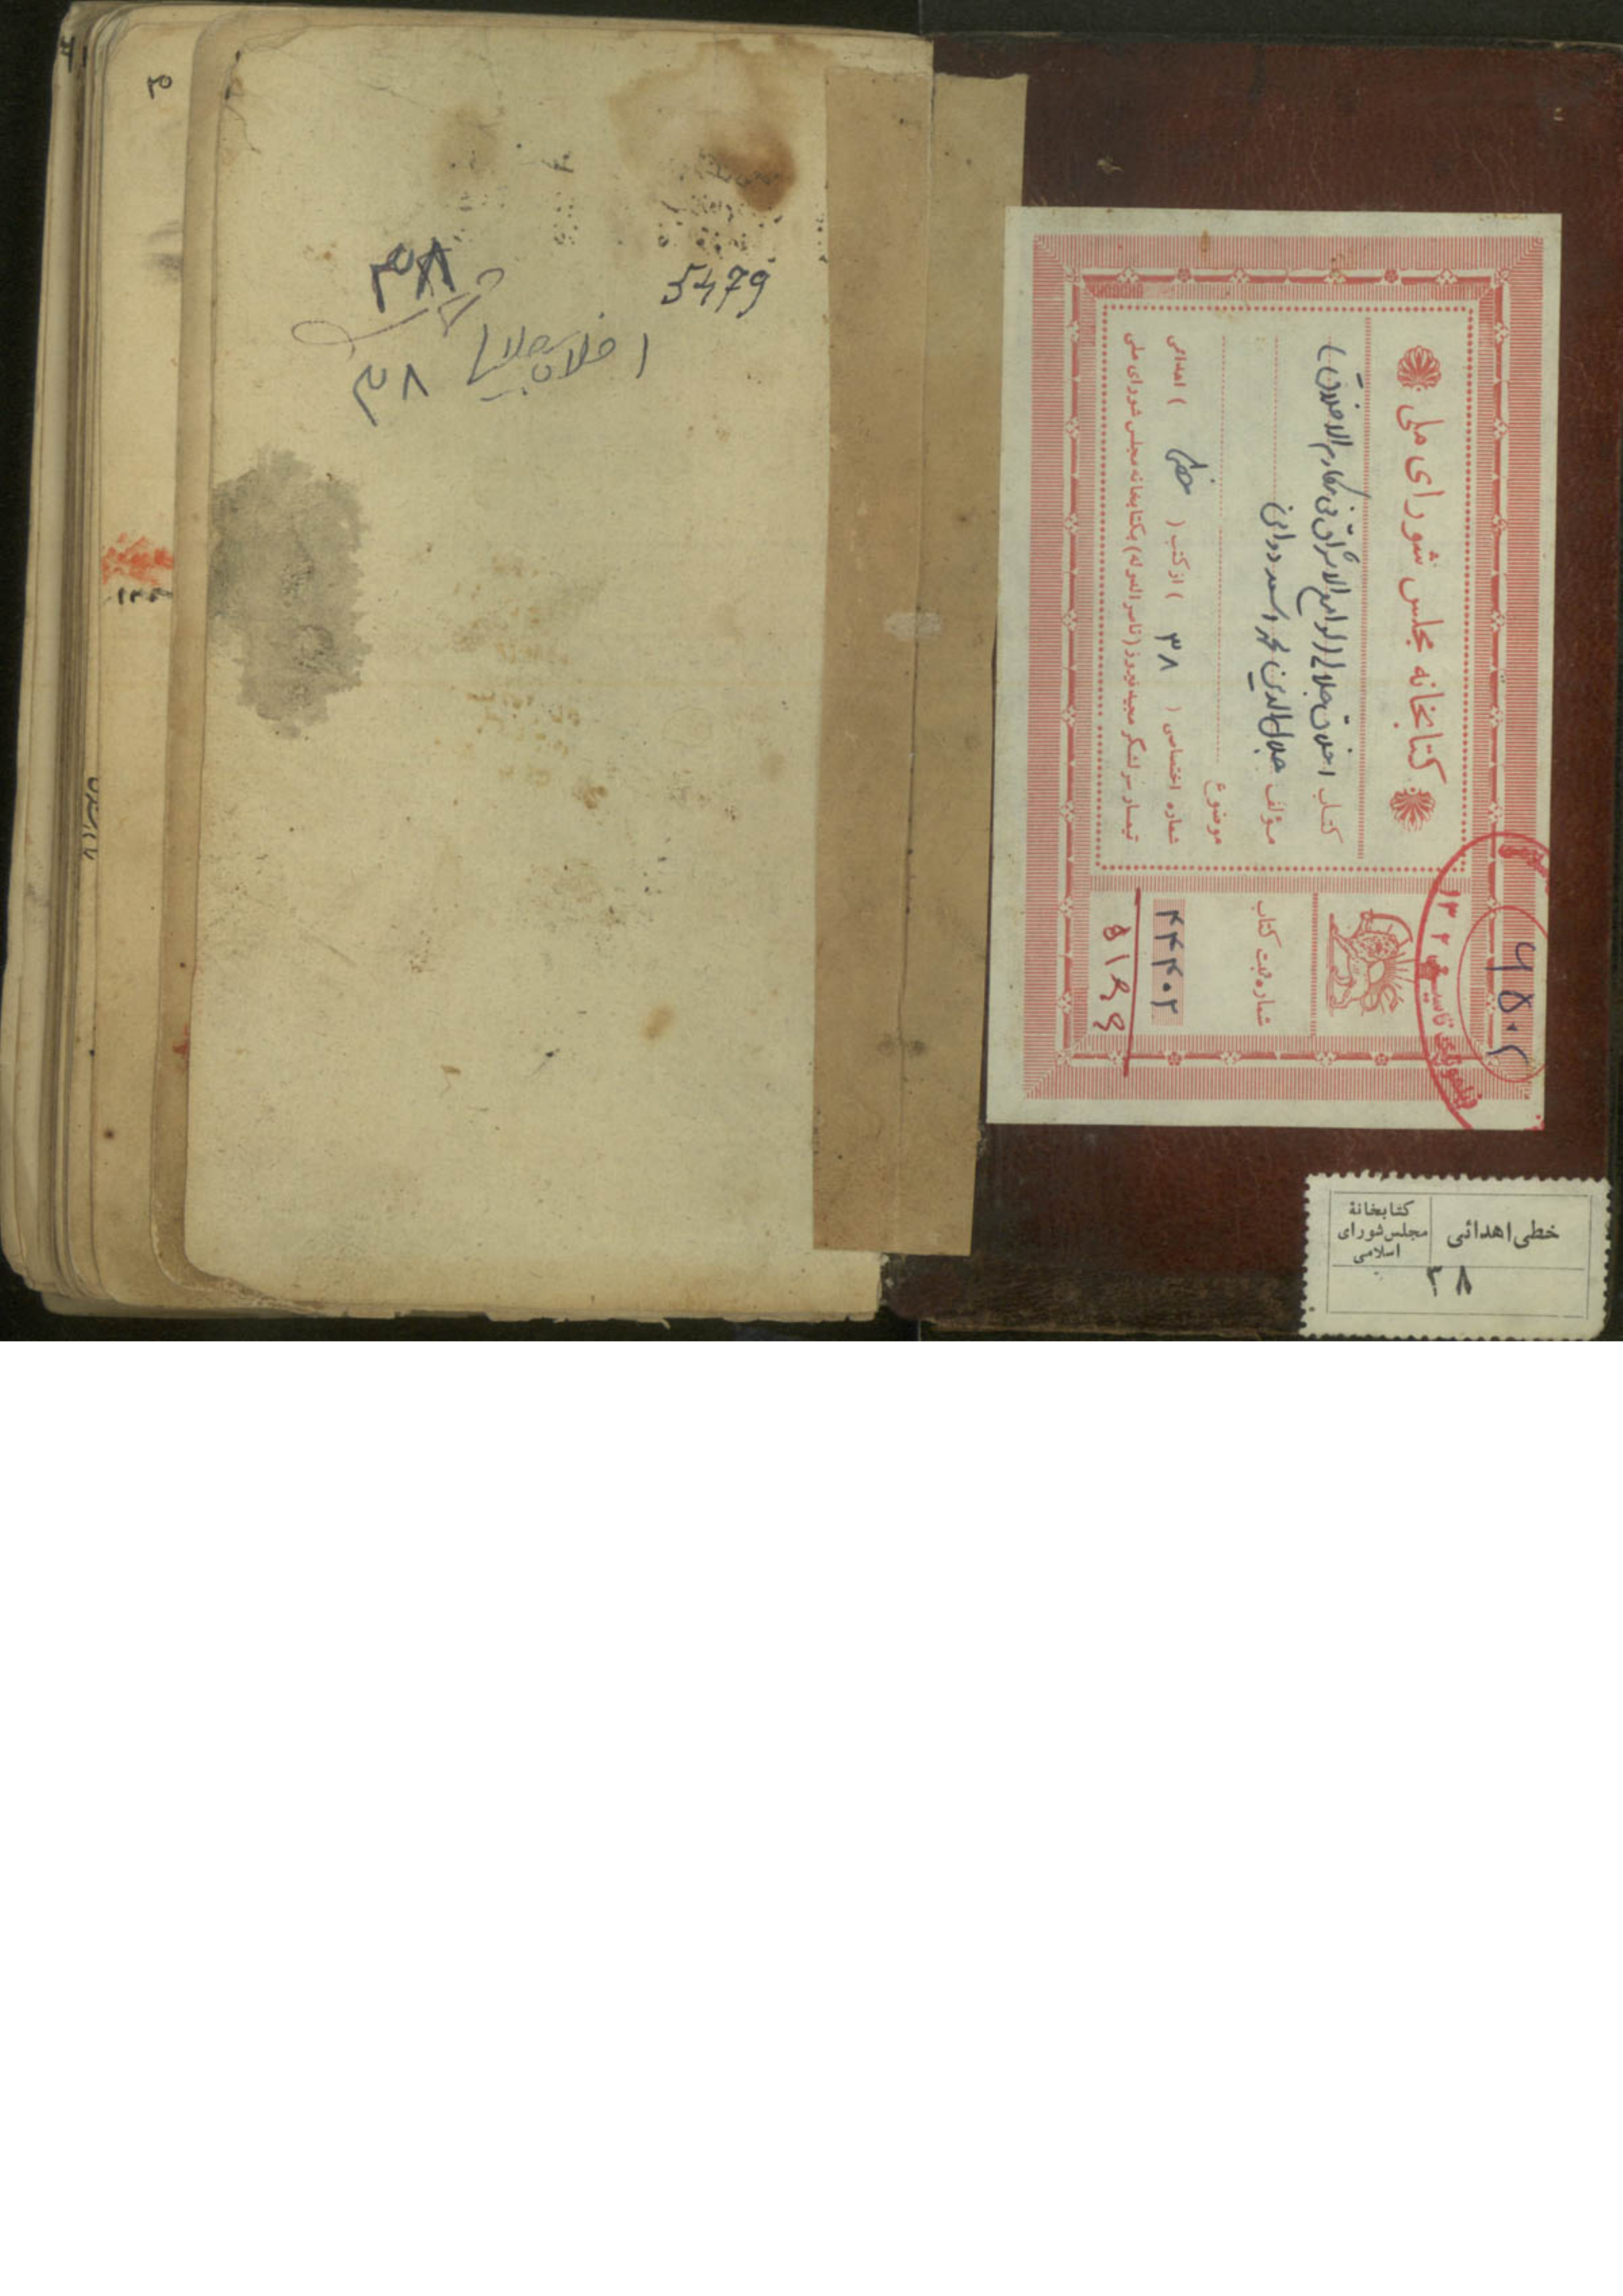 کتابخانه مجلس شورای ملی
کتاب اخلاق جلالی (لوامع الاشراق فی مکارم الاخلاق)
مؤلف جلال الدین محمد اسعد دوانی
موضوع
شماره اختصاصی ( ۳۸ ) از کتب ( خطی ) اهدائی
تیمسار سرلشکر مجید فیروز (ناصرالدوله) بکتابخانه مجلس شورای ملی
شماره ثبت کتاب
۴۴۴۰۲
۶۵۰۲
خطی اهدائی
کتابخانهٔ
مجلس شورای
اسلامی
۳۸
5479
۳۸
اخلاق جلالی
۳۸